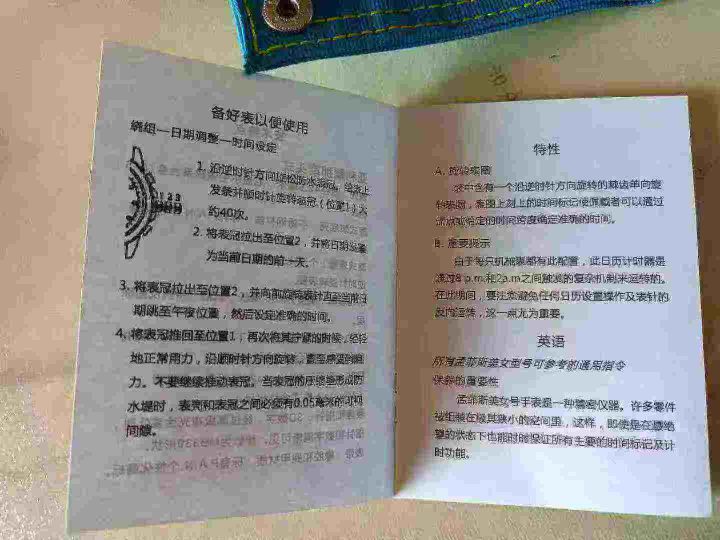 备好表以便使用
绕组一日期调整一时间设定
1 2 3
1. 沿逆时针方向旋松防水冠。给表上
发条并顺时针旋转表冠（位置1）大
约40次。
2. 将表冠拉出至位置2，并将日期
为当前日期的前一天。
3. 将表冠拉出至位置2，并向前旋转表针直至当前日
期跳至午夜位置，然后设定准确的时间。
4. 将表冠推回至位置1，再次将其拧紧的时候，轻轻
地正常用力，沿顺时针方向旋转，直至感到阻
力。不要继续推动表冠。当表冠的压缝垫形成防
水堤时，表壳和表冠之间必须有0.05毫米的
间隙。
特性
A. 旋转表圈
这中含有一个沿逆时针方向旋转的棘齿单向旋
转表圈，表圈上刻上的时间标记使佩戴者可以通过
给定的时间跨度确定准确的时间。
B. 重要提示
由于每只机械表都有此配置，此日历计时器是
通过8 p.m.和2a.m之间触发的复杂机制来运转的。
在此期间，要注意避免任何日历设置操作及表针的
反向运转，这一点尤为重要。
英语
所有孟菲斯美女型号可参考的通用指令
保养的重要性
孟菲斯美女号手表是一种精密仪器。许多零件
被组装在极其狭小的空间里，这样，即使是在
的状态下也能时时保证所有主要的时间标记及计
时功能。